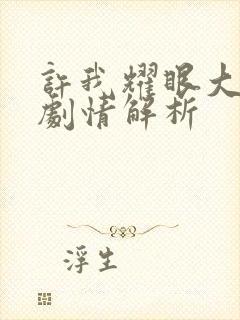 許我耀眼大
劇情解析
浮生